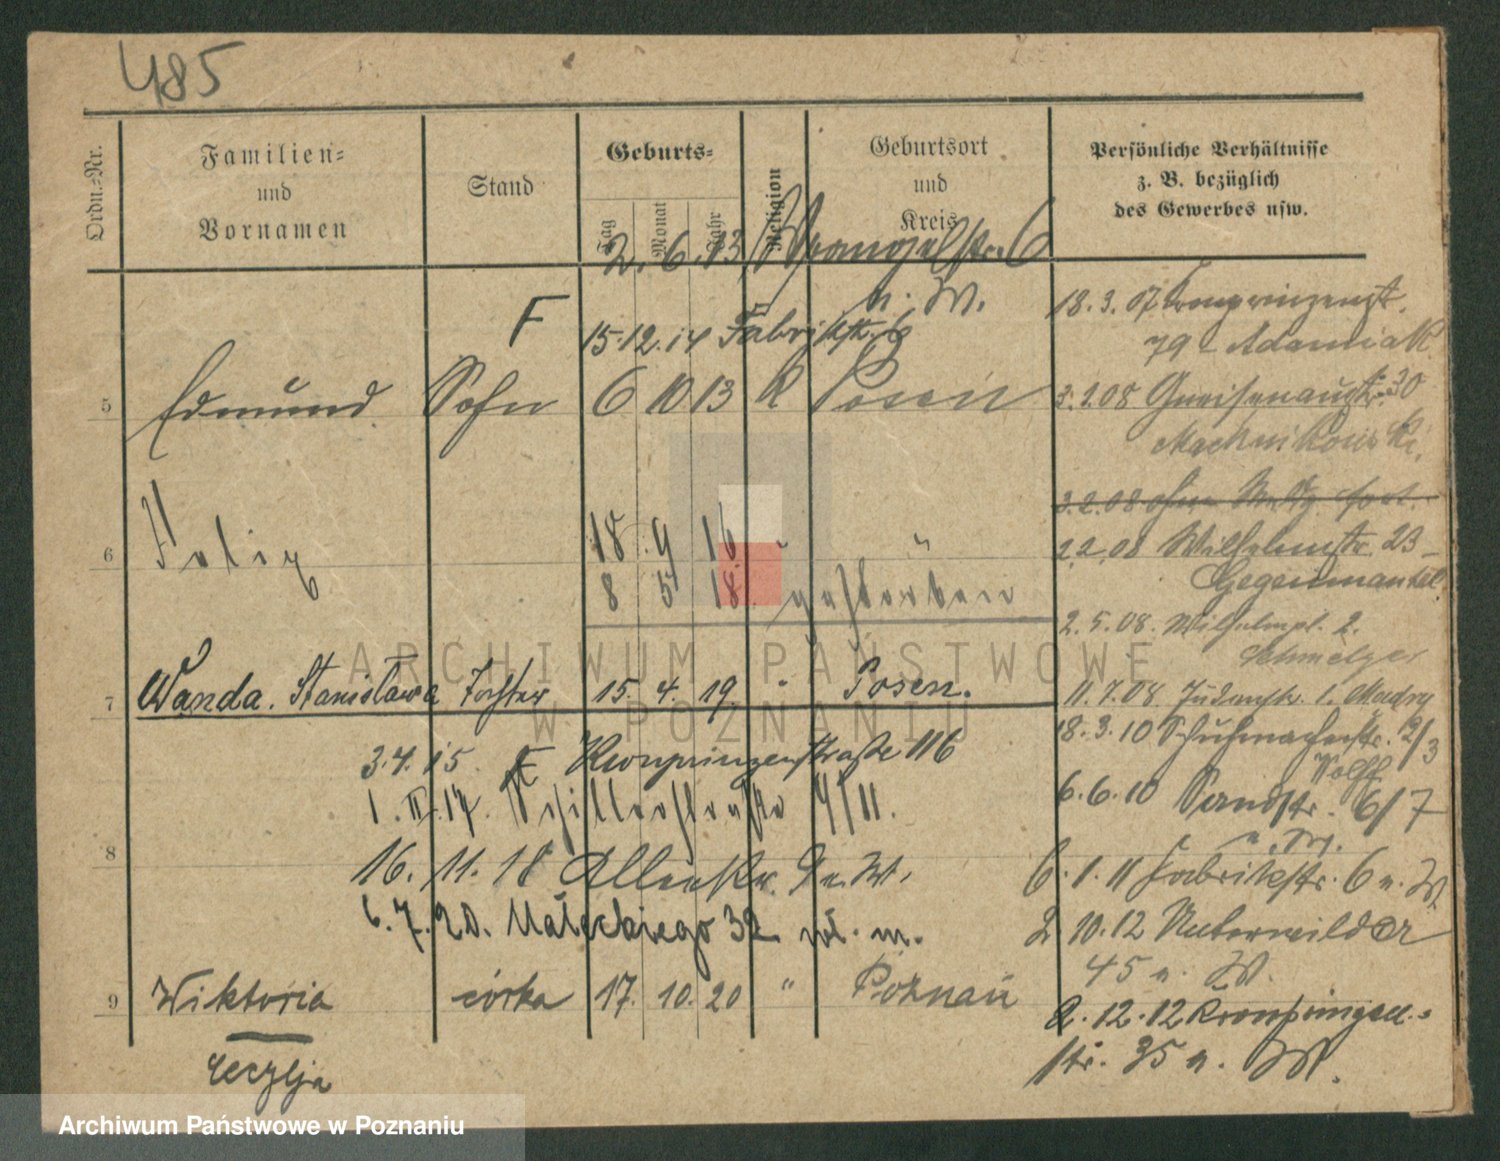 485
Ordn.-Nr.
Familien-
und
Vornamen
Stand
Geburts-
Tag
Monat
Jahr
Religion
Geburtsort
und
Kreis
Persönliche Verhältnisse
z. B. bezüglich
des Gewerbes usw.
2. 6. 13 Wrangelstr. 6
n. W.
F 15.12.14 Fabrikstr. 6
5 Edmund Sohn 6 10 13 K Posen
6 Felix 18 9 16 "
8 5 18 gestorben
7 Wanda. Stanisława Tochter 15. 4. 19. " Posen.
3.4.15 F Kronprinzenstraße 116
1. II. 17. Schillerstraße 4/II.
8
16. 11. 18 Alleestr. 9 n. W.
6. 7. 20. Małeckiego 32 wł. m.
9 Wiktoria córka 17. 10. 20 " Poznań
Cecylja
18.3.07 Kronprinzenstr.
79 - Adamiak
3.2.08 Gneisenaustr. 30
Machnikowski.
3.2.08 ohne
2.2.08 Wilhelmstr. 23 -
Gegenmantel.
2.5.08. Wilhelmpl. 2.
Schmelzer
11.7.08. 1. Madry
18.3.10 Schuhmacherstr. 2/3
Wolff
6.6.10 Sandstr. 6/7
n. W.
6.1.11 Fabrikstr. 6 n. W.
2 10.12 Unterwilda
45 n. W.
2.12.12 Kronprinzen-
str. 35 n. W.
ARCHIWUM PAŃSTWOWE
W POZNANIU
Archiwum Państwowe w Poznaniu